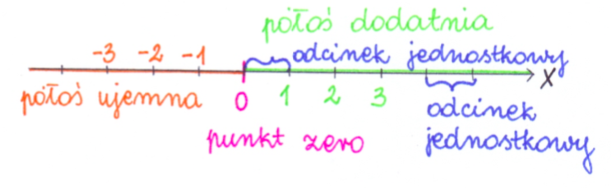 półoś dodatnia
-3 -2 -1 odcinek jednostkowy
x
półoś ujemna 0 1 2 3 odcinek
jednostkowy
punkt zero